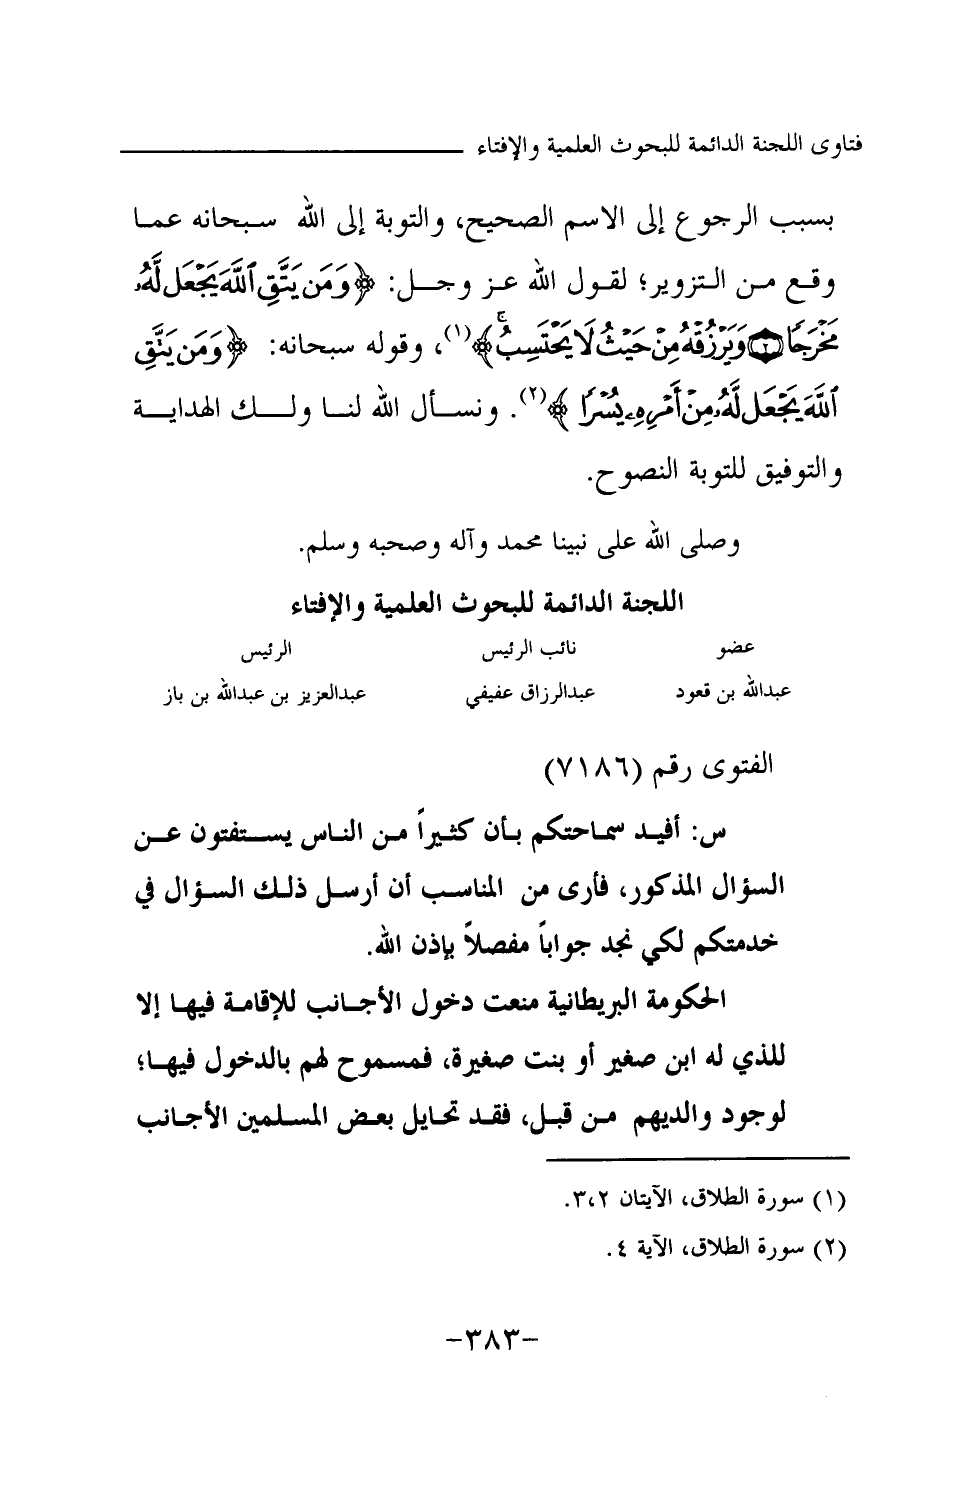 فتاوى اللجنة الدائمة للبحوث العلمية والإفتاء
بسبب الرجوع إلى الاسم الصحيح، والتوبة إلى الله سبحانه عما
وقع من التزوير؛ لقول الله عز وجل: ﴿وَمَن يَتَّقِ ٱللَّهَ يَجْعَل لَّهُۥ
مَخْرَجًا ٢ وَيَرْزُقْهُ مِنْ حَيْثُ لَا يَحْتَسِبُ ۚ﴾(١)، وقوله سبحانه: ﴿وَمَن يَتَّقِ
ٱللَّهَ يَجْعَل لَّهُۥ مِنْ أَمْرِهِۦ يُسْرًا﴾(٢). ونسأل الله لنا ولك الهداية
والتوفيق للتوبة النصوح.
وصلى الله على نبينا محمد وآله وصحبه وسلم.
اللجنة الدائمة للبحوث العلمية والإفتاء
عضو نائب الرئيس الرئيس
عبدالله بن قعود عبدالرزاق عفيفي عبدالعزيز بن عبدالله بن باز
الفتوى رقم (٧١٨٦)
س: أفيد سماحتكم بأن كثيراً من الناس يستفتون عن
السؤال المذكور، فأرى من المناسب أن أرسل ذلك السؤال في
خدمتكم لكي نجد جواباً مفصلاً بإذن الله.
الحكومة البريطانية منعت دخول الأجانب للإقامة فيها إلا
للذي له ابن صغير أو بنت صغيرة، فمسموح لهم بالدخول فيها؛
لوجود والديهم من قبل، فقد تحايل بعض المسلمين الأجانب
(١) سورة الطلاق، الآيتان ٣،٢.
(٢) سورة الطلاق، الآية ٤.
-٣٨٣-